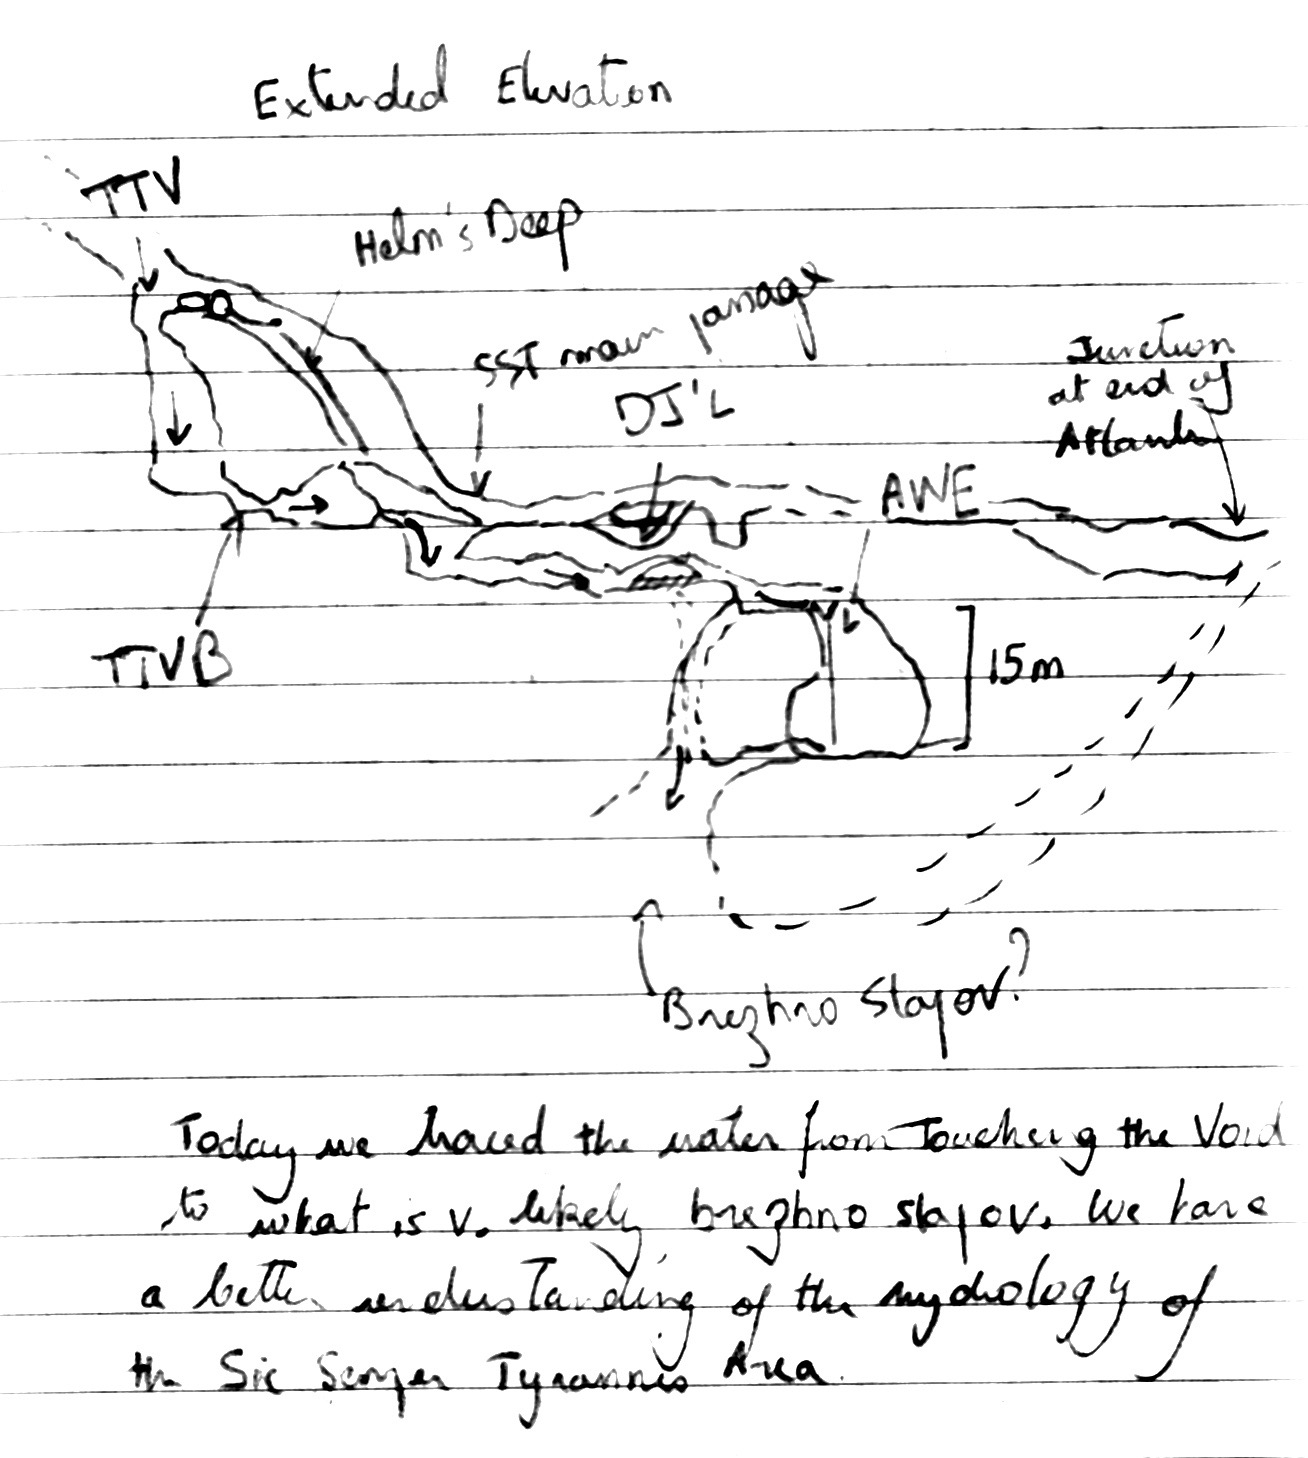 Extended Elevation
TTV
Helm's Deep
SST main passage
DJ'L
Junction
at end of
Atlantis
AWE
TTVB
15m
Brezhno Stajov?
Today we traced the water from Touching the Void
to what is v. likely brezhno stajov. We have
a better understanding of the hydrology of
the Sic Semper Tyrannis Area.